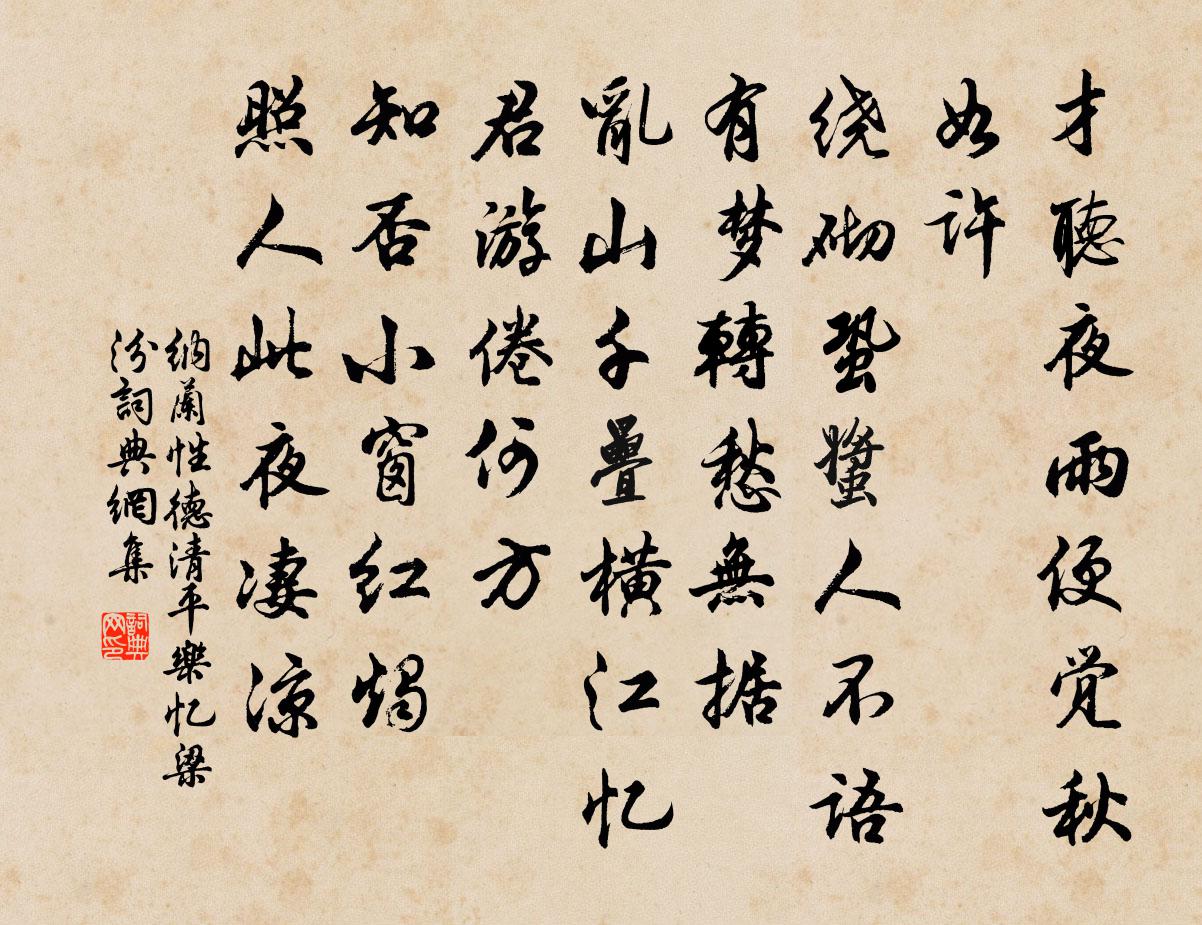 才聽夜雨便觉秋
如许
绕砌蛩螿人不语
有梦轉愁無据
亂山千疊横江忆
君游倦何方
知否小窗红烛
照人此夜凄凉
纳蘭性德清平樂忆梁
汾詞典網集
詞典
网印